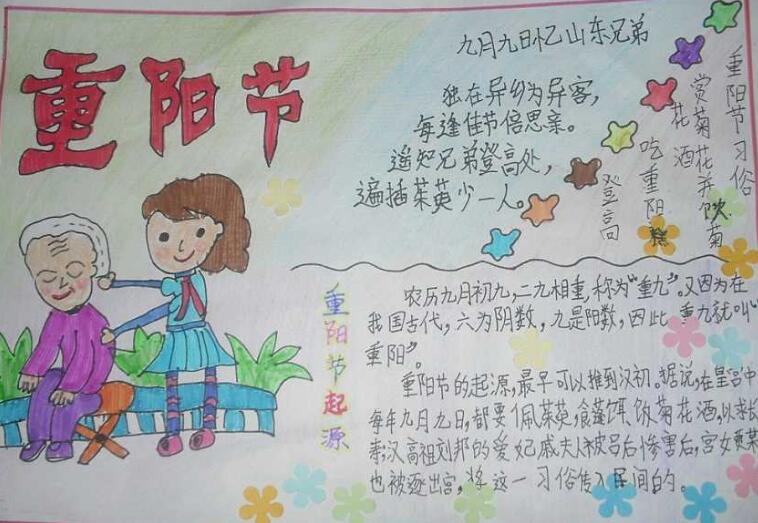 重阳节
九月九日忆山东兄弟
独在异乡为异客，
每逢佳节倍思亲。
遥知兄弟登高处，
遍插茱英少一人。
重阳节习俗
赏菊花并饮菊
花酒
吃重阳糕
登高
重阳节起源
农历九月初九，二九相重，称为“重九”。又因为在
我国古代，六为阴数，九是阳数，因此，重九就叫“
重阳”。
重阳节的起源，最早可以推到汉初。据说，在皇宫中
每年九月九日，都要佩茱英，食蓬饵、饭菊花酒，以求长
寿；汉高祖刘邦的爱妃戚夫人被吕后惨害后，宫女贾某
也被逐出宫，将这一习俗传入民间的。